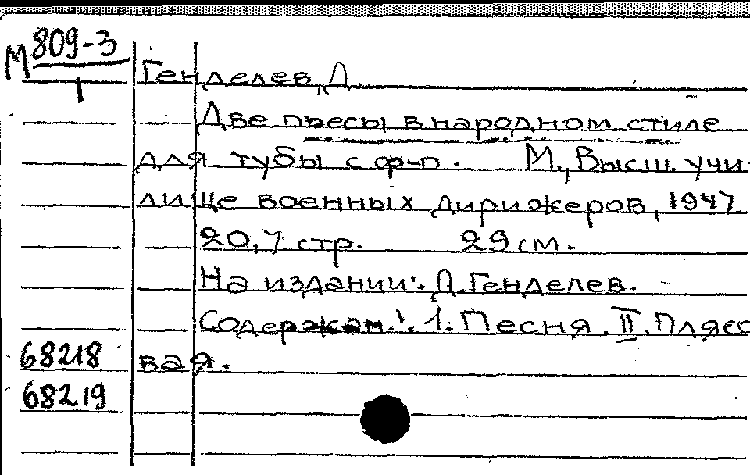 М 809-3
1
Генделев, Д.
Две пьесы в народном стиле
для тубы с ф-п. М., Высш. учи
лище военных дирижеров, 1947
20,7 стр. 29 см.
На издании: Д. Генделев.
Содержан.: 1. Песня. II. Плясо
68218 вая.
68219